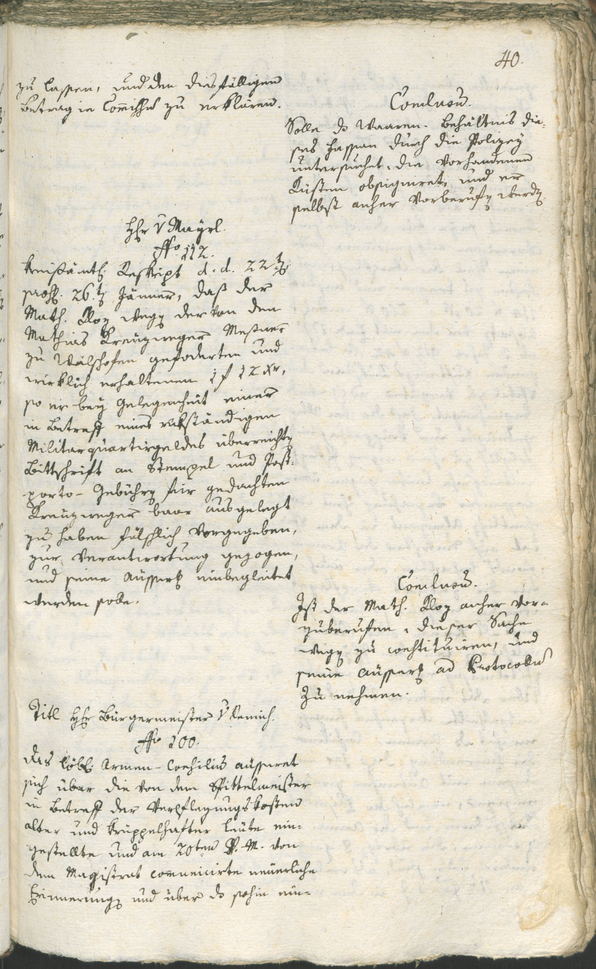 40.
zu lassen, und den diesfälligen
Betrag in Commissis zu erklären.
Conclusum.
Solle das Waaren-Behältnis die-
ses Hassan durch die Polizey
untersuchet, die vorhandenen
Kisten obsigniret, und er
selbst anher vorberufen werden.
Hr. v. Mayrl.
Nro 192.
Kreisämtl. Reskript d. d. 22ten
praes. 26ten Jänner, daß der
Math. Kloz wegen der von dem
Mathias Kreuzweger Messner
zu Walshofen geforderten und
wirklich erhaltenen 1 f 12 xr,
so er bey Gelegenheit einer
in Betreff eines rukständigen
Militarquartirgeldes überreichten
Bittschrift an Stempel und Post-
porto-Gebühren für gedachten
Kreuzweger baar ausgelegt
zu haben fälschlich vorgegeben,
zur Verantwortung gezogen,
und seine Äusserung einbegleitet
werden solle.
Conclusum.
Ist der Math. Kloz anher vor-
zuberufen, dieser Sache
wegen zu constituiren, und
seine Äusserung ad Protocollum
zu nehmen.
Titl Hr. Bürgermeister v. Remich.
Nro 200.
Das löbl. Armen-Consilium äusseret
sich über die von dem Spittelmeister
in Betreff der Verpflegungskosten
alter und krüppelhafter Leute ein-
gestellte und am 20ten d. M. von
dem Magistrat communicirte neuerliche
Erinnerung, und über das sohin ein-